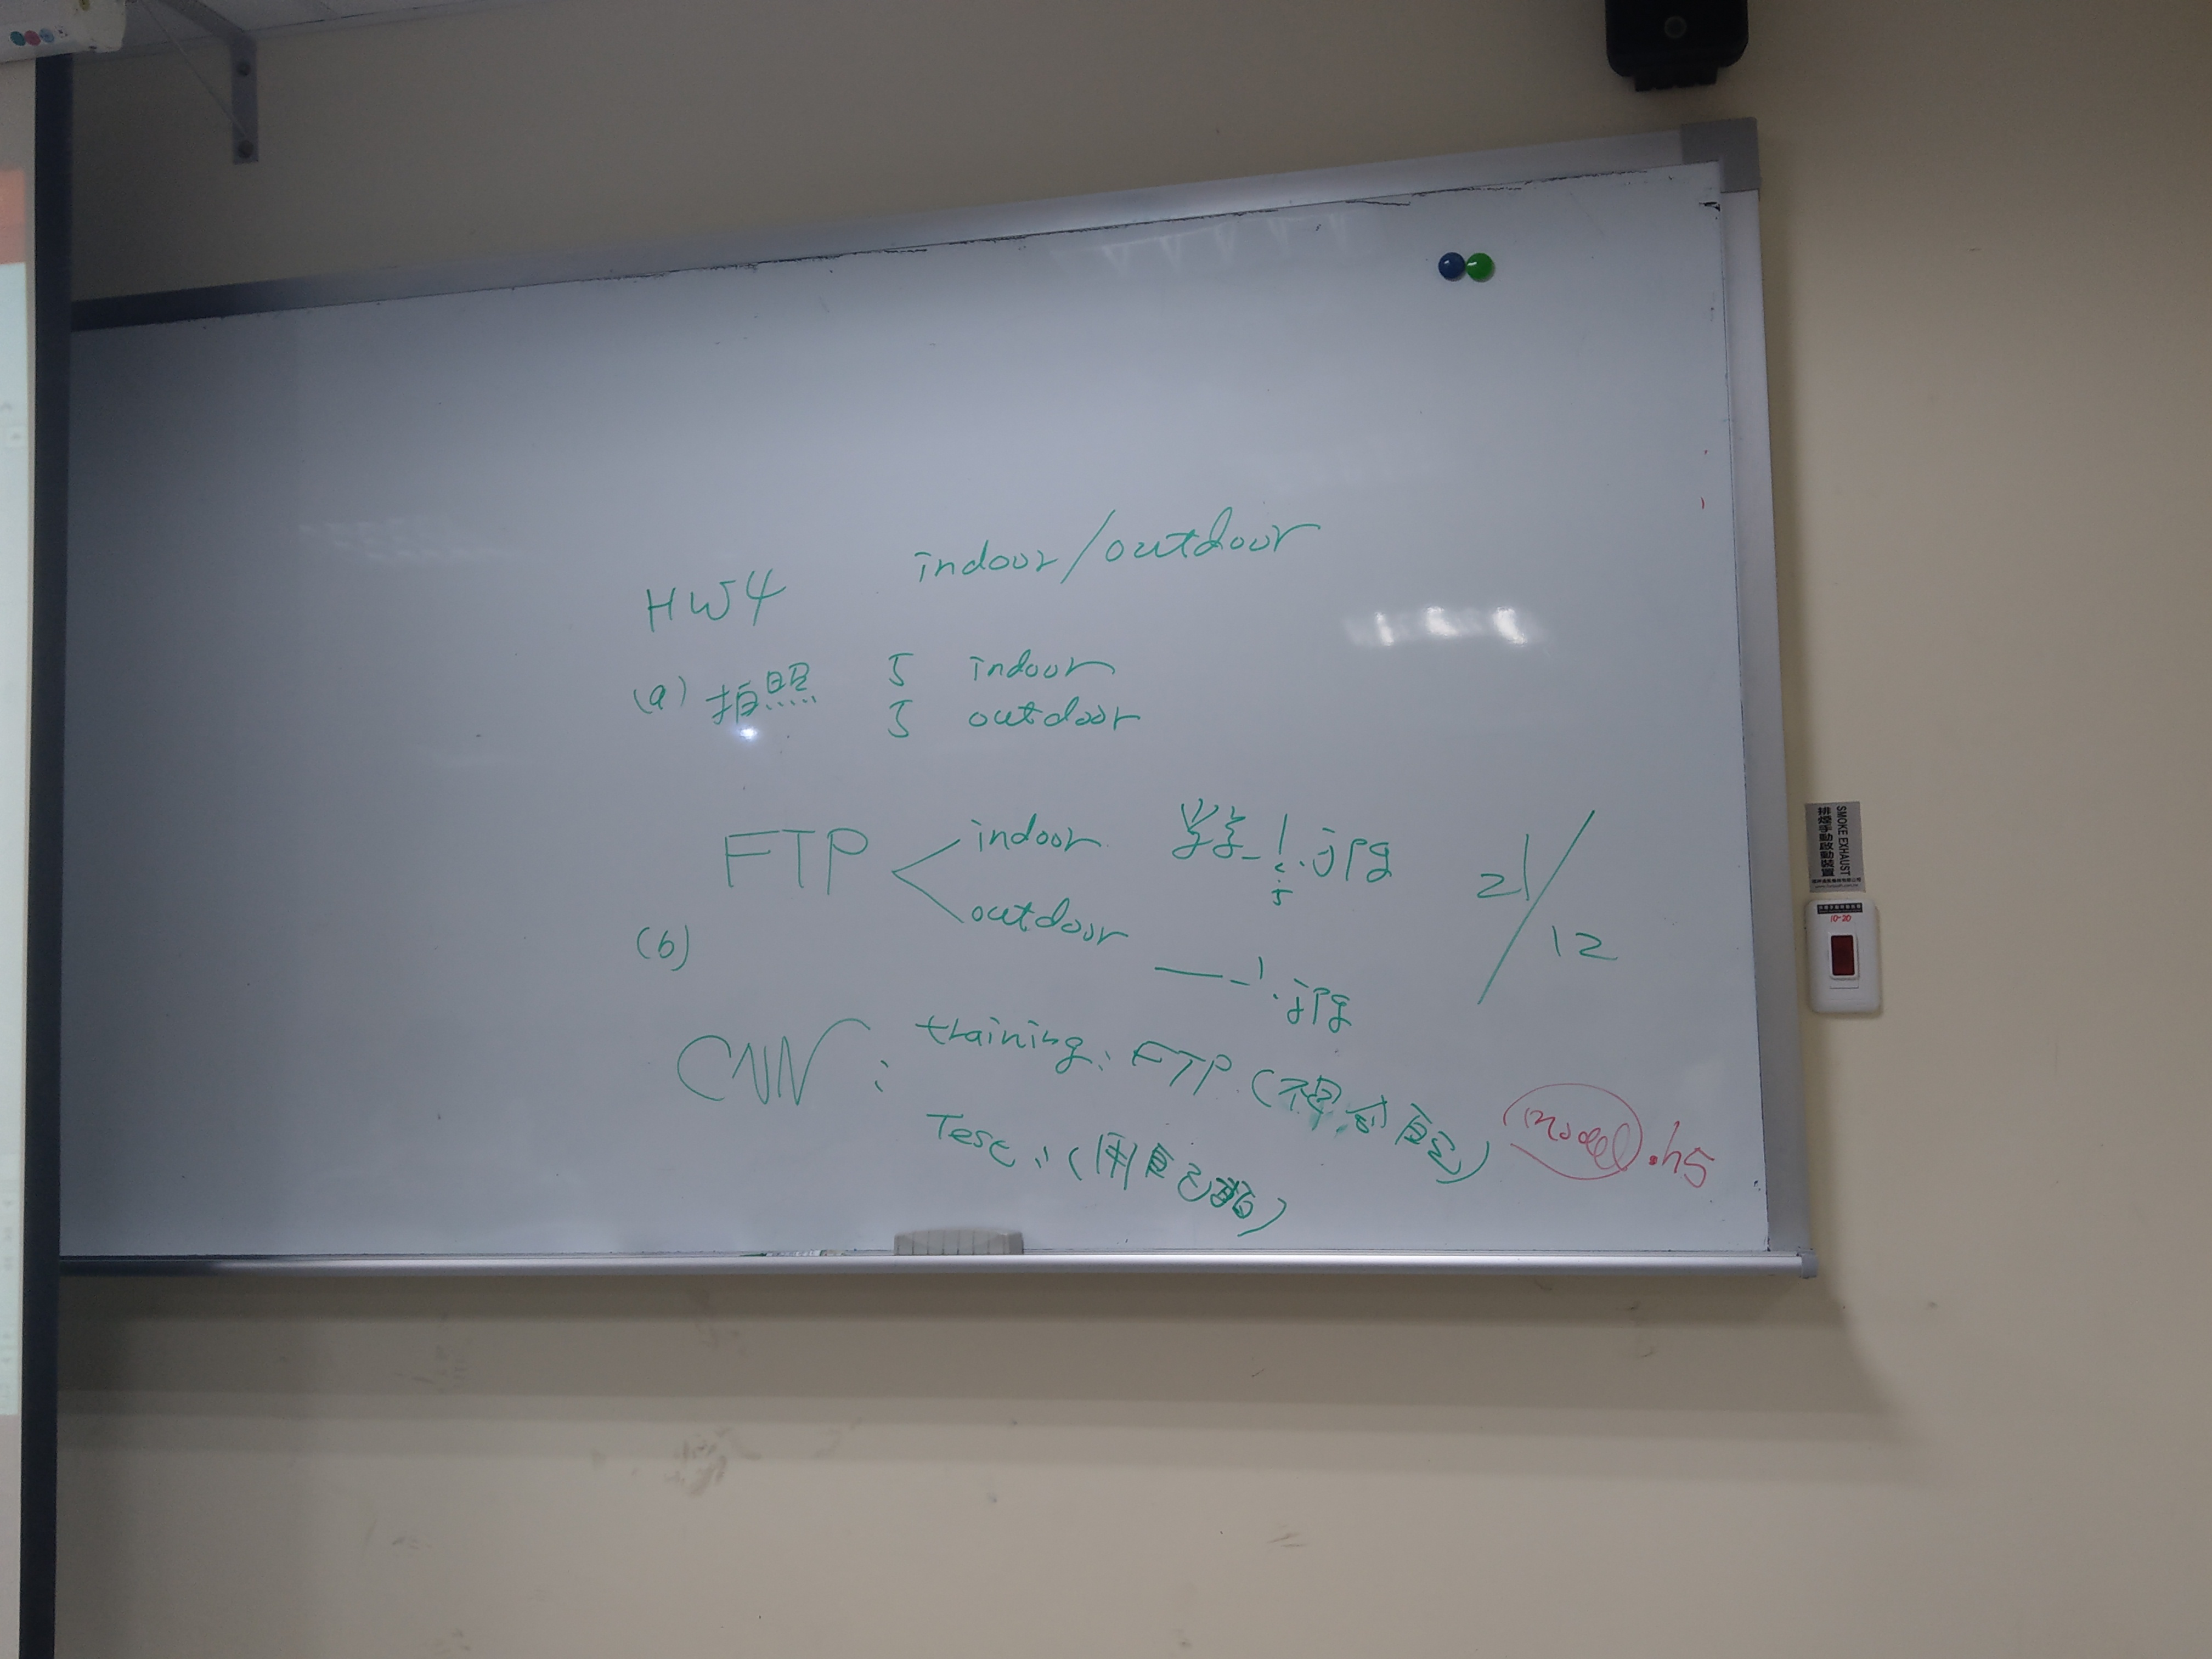 HW4 indoor/outdoor
(a) 拍照 5 indoor
5 outdoor
FTP indoor 學號_1.jpg
5
outdoor _1.jpg
21/12
(b)
CNN: training: FTP (不包含自己)
Test: (用自己的)
model.h5
SMOKE EXHAUST
排煙手動啟動裝置
10-20